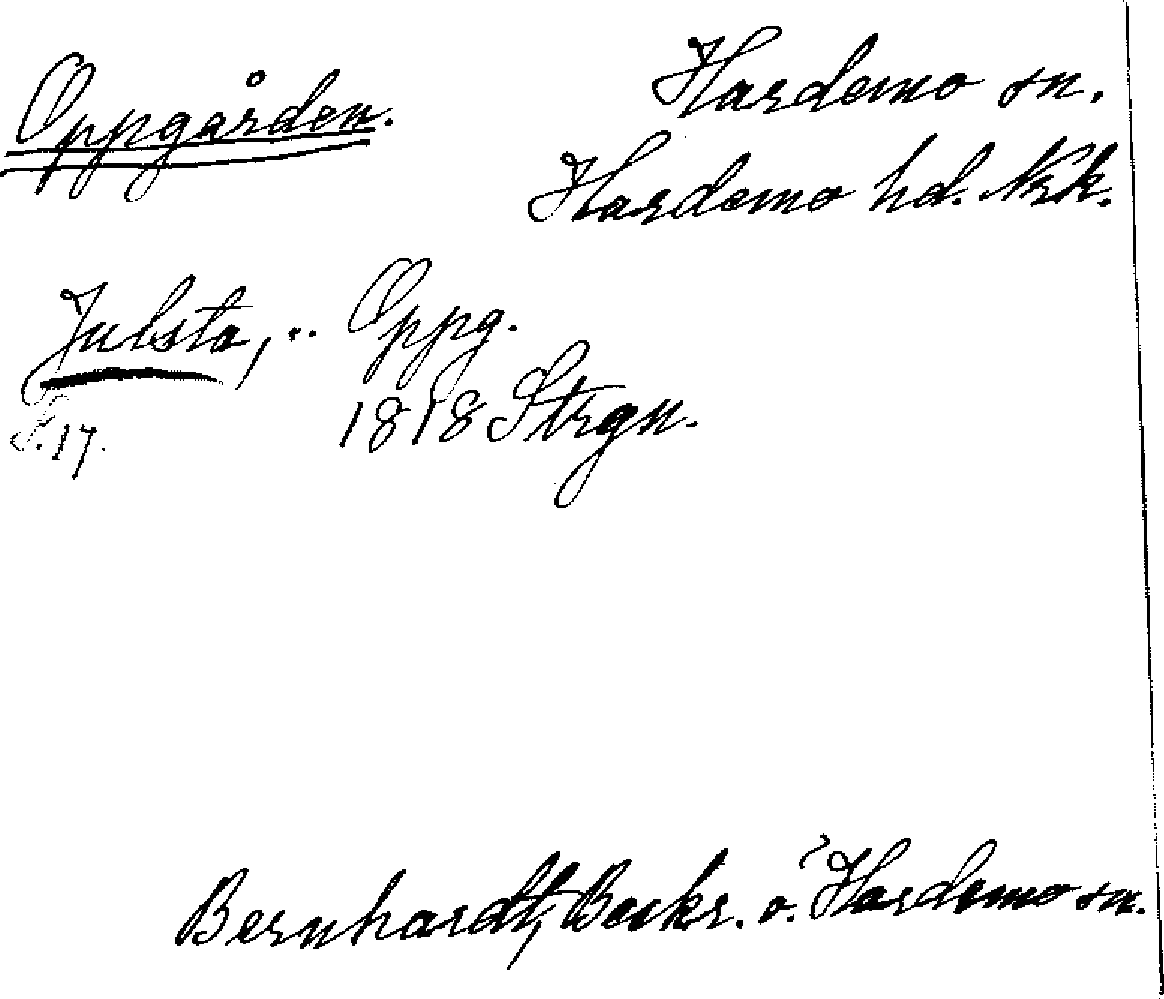 Oppgården.
Hardemo sn.
Hardemo hd. Nrk.
Julsta, .. Oppg.
S. 17.
1818 Strgn.
Bernhardt, Beskr. ö. Hardemo sn.